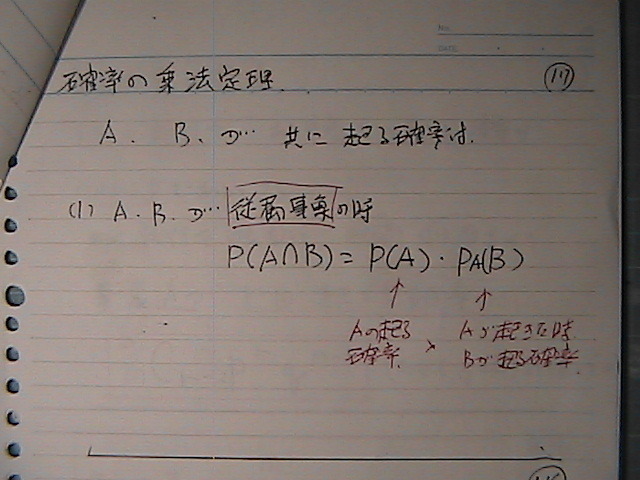 No.
DATE
確率の乗法定理. 17
A. B. が… 共に 起る確率は.
(1) A. B. が… 従属事象の時
P(A∩B) = P(A)・PA(B)
↑ ↑
Aの起る × Aが起きた時.
確率. Bが起る確率.